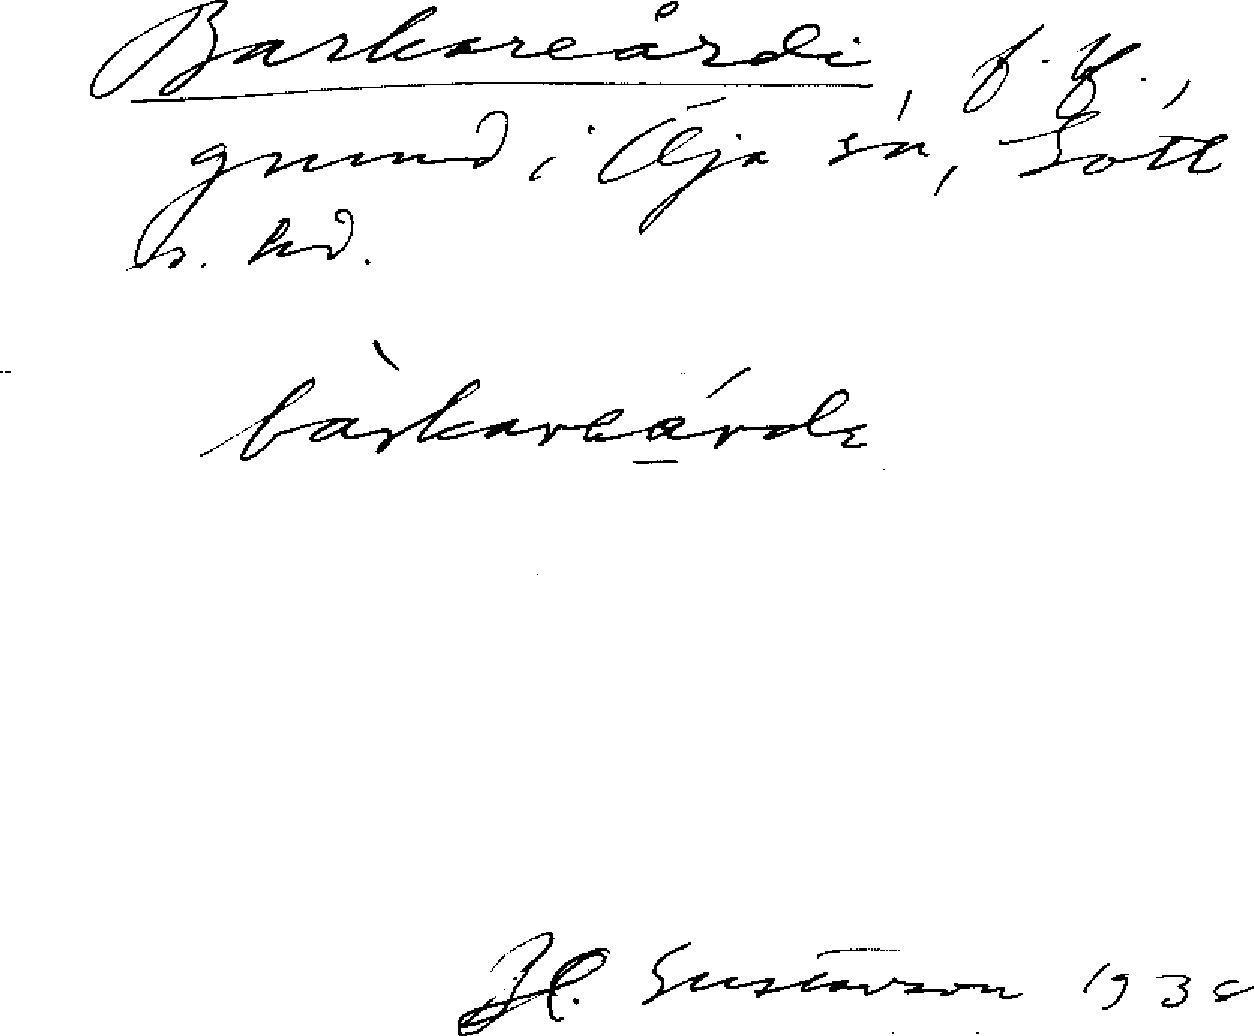 Barkareårdi, f. f.,
grund i Öja sn, Gotl
s. hd.
bàrkareárde
H. Gustavson